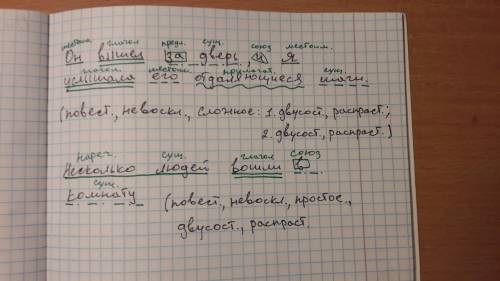 местоим. глагол предл. сущ. союз местоим.
Он вышел за дверь, и я
глагол. местоим. прилагат. сущ.
услышала его отдаляющиеся шаги.
(повест., невоскл., сложное: 1. двусост., распраст.;
2. двусост., распраст.)
нареч. сущ. глагол союз
Несколько людей вошли в
сущ.
комнату (повест., невоскл., простое.,
двусост., распраст.